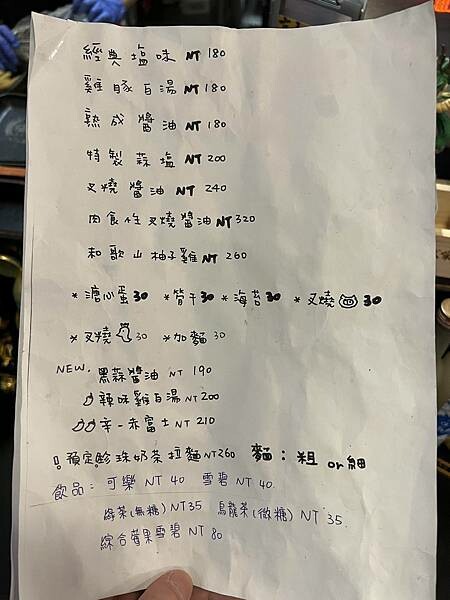 經典塩味 NT 180
雞豚白湯 NT 180
熟成醬油 NT 180
特製蒜塩 NT 200
叉燒醬油 NT 240
肉食性叉燒醬油 NT 320
和歌山柚子雞 NT 260
*溏心蛋30 *筍干30 *海苔30 *叉燒 30
*叉燒 30 *加麵 30
NEW. 黑蒜醬油 NT 190
辣味雞白湯 NT 200
辛-赤富士 NT 210
預定!珍珠奶茶拉麵 NT260 麵: 粗 or 細
飲品: 可樂 NT 40 雪碧 NT 40
綠茶(無糖) NT35 烏龍茶(微糖) NT 35
綜合莓果雪碧 NT 80